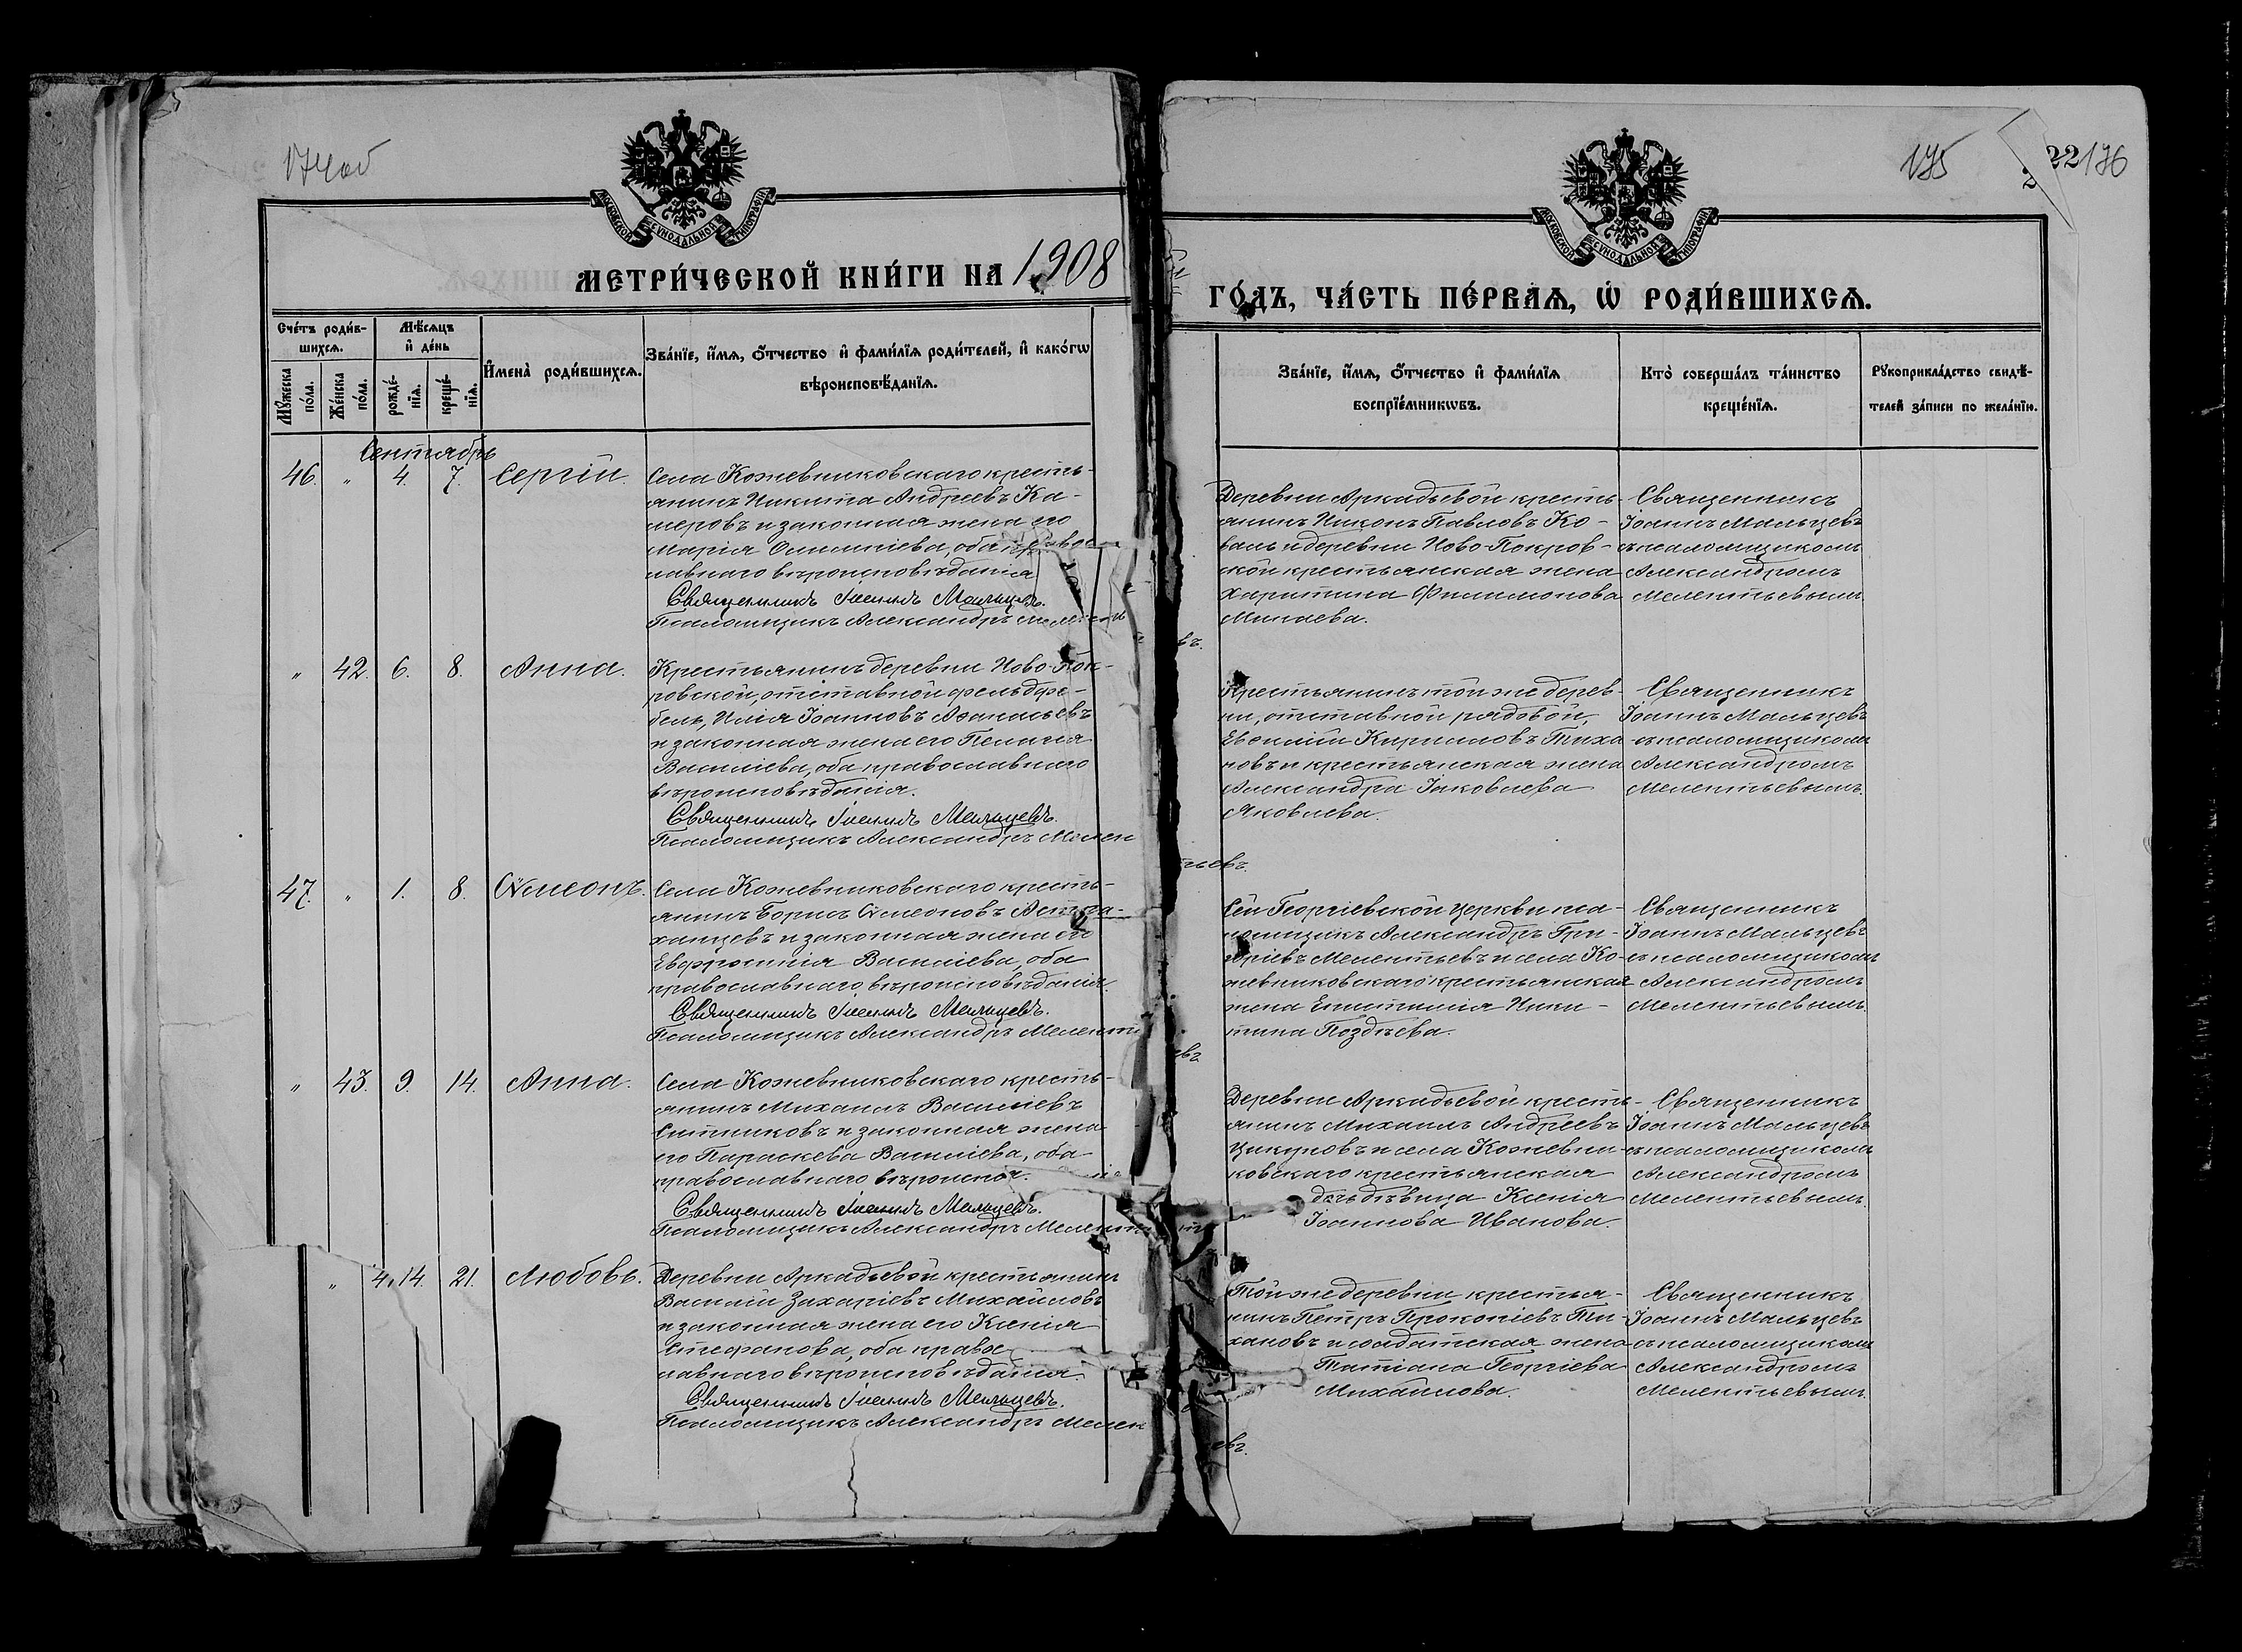 174об
175
22176
МОСКОВСКОЙ СѴНОДАЛЬНОЙ ТИПОГРАФІИ
МОСКОВСКОЙ СѴНОДАЛЬНОЙ ТИПОГРАФІИ
МЕТРИ́ЧЕСКОЙ КНИ́ГИ НА 1908
ГО́ДЪ, ЧА́СТЬ ПЕ́РВАѦ, Ѽ РОДИ́ВШИХСѦ.
Сче́тъ роди́в-
шихсѧ.
Мѣ́сѧцъ
и҆ де́нь
Мꙋ́жеска
по́ла.
Же́нска
по́ла.
рожде́-
нїѧ.
креще́-
нїѧ.
И҆мена̀ роди́вшихсѧ.
Зва́нїе, и҆́мѧ, ѻ҆́тчество и҆ фами́лїѧ роди́телей, и҆ како́гѡ
вѣроисповѣ́данїѧ.
Зва́нїе, и҆́мѧ, ѻ҆́тчество и҆ фами́лїѧ
воспрїе́мникѡвъ.
Кто̀ соверша́лъ та́инство
креще́нїѧ.
Рꙋкоприкла́дство свидѣ́-
телей за́писи по жела́нїю.
Сентябрь
46. " 4. 7. Сергій.
Села Кожевниковскаго кресть-
янинъ Никита Андреевъ Ка-
меровъ и законная жена его
Марія Олимпіева, оба правос-
лавнаго вѣроисповѣданія
Священникъ Іоаннъ Мальцевъ.
Псаломщикъ Александръ Мелентьевъ.
Деревни Аркадьевой кресть-
янинъ Никонъ Павловъ Ко-
валь и деревни Ново-Покров-
ской крестьянская жена
Харитина Филимонова
Минаева.
Священникъ
Іоаннъ Мальцевъ
съ псаломщикомъ
Александромъ
Мелентьевымъ.
" 42. 6. 8. Анна.
Крестьянинъ деревни Ново-Пок-
ровской, отставной фельдфе-
бель, Илія Іоанновъ Аѳанасьевъ
и законная жена его Пелагія
Василіева, оба православнаго
вѣроисповѣданія.
Священникъ Іоаннъ Мальцевъ.
Псаломщикъ Александръ Мелентьевъ.
Крестьянинъ той же дерев-
ни, отставной рядовой,
Евсилій Кирилловъ Тиха
новъ и крестьянская жена
Александра Іаковлева
Яковлева.
Священникъ
Іоаннъ Мальцевъ
съ псаломщикомъ
Александромъ
Мелентьевымъ.
47. " 1. 8. Сѵмеонъ.
Села Кожевниковскаго кресть-
янинъ Борисъ Сѵмеоновъ Астра-
ханцевъ и законная жена его
Евфросинія Василіева, оба
православнаго вѣроисповѣданія.
Священникъ Іоаннъ Мальцевъ.
Псаломщикъ Александръ Мелентьевъ.
Сей Георгіевской церкви пса-
ломщикъ Александръ Гри-
горіевъ Мелентьевъ и села Ко-
жевниковскаго крестьянская
жена Епистимія Ники-
тина Поздѣева.
Священникъ
Іоаннъ Мальцевъ
съ псаломщикомъ
Александромъ
Мелентьевымъ.
" 43. 9. 14. Анна.
Села Кожевниковскаго кресть-
янинъ Михаилъ Василіевъ
Ситниковъ и законная жена
его Параскева Василіева, оба
православнаго вѣроиспов.
Священникъ Іоаннъ Мальцевъ.
Псаломщикъ Александръ Мелентьевъ
Деревни Аркадьевой кресть-
янинъ Михаилъ Андреевъ
Цикуновъ и села Кожевни-
ковскаго крестьянская
дочь дѣвица Ксенія
Іоаннова Иванова.
Священникъ
Іоаннъ Мальцевъ
съ псаломщикомъ
Александромъ
Мелентьевымъ.
" 4. 14. 21. Любовь.
Деревни Аркадьевой крестьянинъ
Василій Захаріевъ Михайловъ
и законная жена его Ксенія
Стефанова, оба правос
лавнаго вѣроисповѣданія.
Священникъ Іоаннъ Мальцевъ.
Псаломщикъ Александръ Мелентьевъ.
Той же деревни крестья-
нинъ Петръ Прокопіевъ Ти-
хановъ и солдатская жена
Татіана Георгіева
Михайлова.
Священникъ
Іоаннъ Мальцевъ
съ псаломщикомъ
Александромъ
Мелентьевымъ.